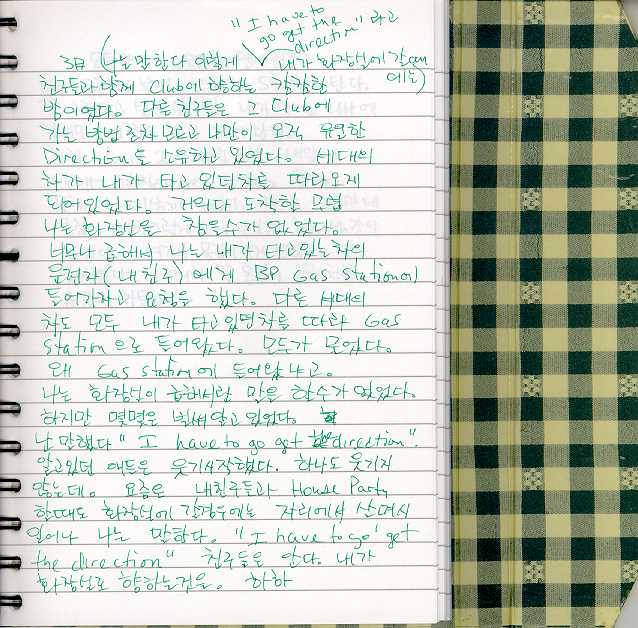 "I have to
go get the
direction" 라고
38 (나는 말한다 이렇게 내가 화장실에 갈때
에는)
친구들과 함께 Club에 향하는 캄캄한
밤이었다. 다른 친구들은 그 Club에
가는 방법 조차 모르고 나만이 오직 유일한
Direction을 소유하고 있었다. 세대의
차가 내가 타고 있던차를 따라오게
되어있었다. 거의다 도착할 무렵
나는 화장실을 참을수가 없었다.
너무나 급해서 나는 내가 타고있는차의
운전자(내친구)에게 BP Gas station에
들어가자고 요청을 했다. 다른 세대의
차도 모두 내가 타고있던차를 따라 Gas
station으로 들어왔다. 모두가 물었다.
왜 Gas station에 들어왔냐고.
나는 화장실이 급해서란 말을 할수가 없었다.
하지만 몇몇은 벌써 알고 있었다.
난 말했다 "I have to go get the direction".
알고있던 애들은 웃기시작했다. 하나도 웃기지
않는데. 요즘은 내친구들과 House Party
할때도 화장실에 갈경우에는 자리에서 살며시
일어나 나는 말한다. "I have to go get
the direction" 친구들은 안다. 내가
화장실로 향하는것을. 하하